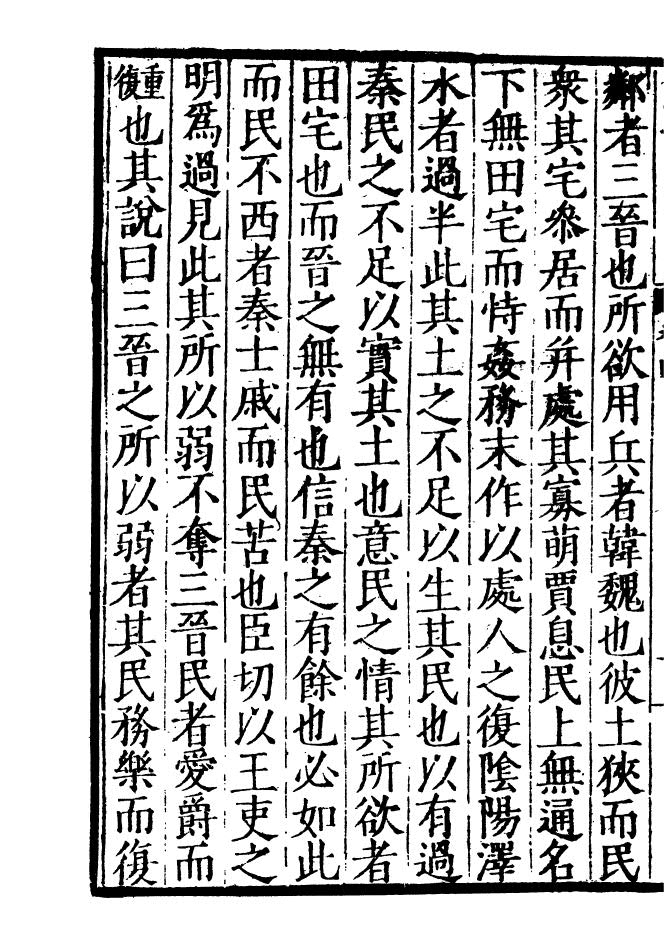 鄰者三晉也所欲用兵者韓魏也彼土狹而民
衆其宅叅居而并處其寡萌賈息民上無通名
下無田宅而恃姦務末作以處人之復陰陽澤
水者過半此其土之不足以生其民也以有過
秦民之不足以實其土也意民之情其所欲者
田宅也而晉之無有也信秦之有餘也必如此
而民不西者秦士戚而民苦也臣切以王吏之
明爲過見此其所以弱不奪三晉民者愛爵而
重復也其說曰三晉之所以弱者其民務樂而復